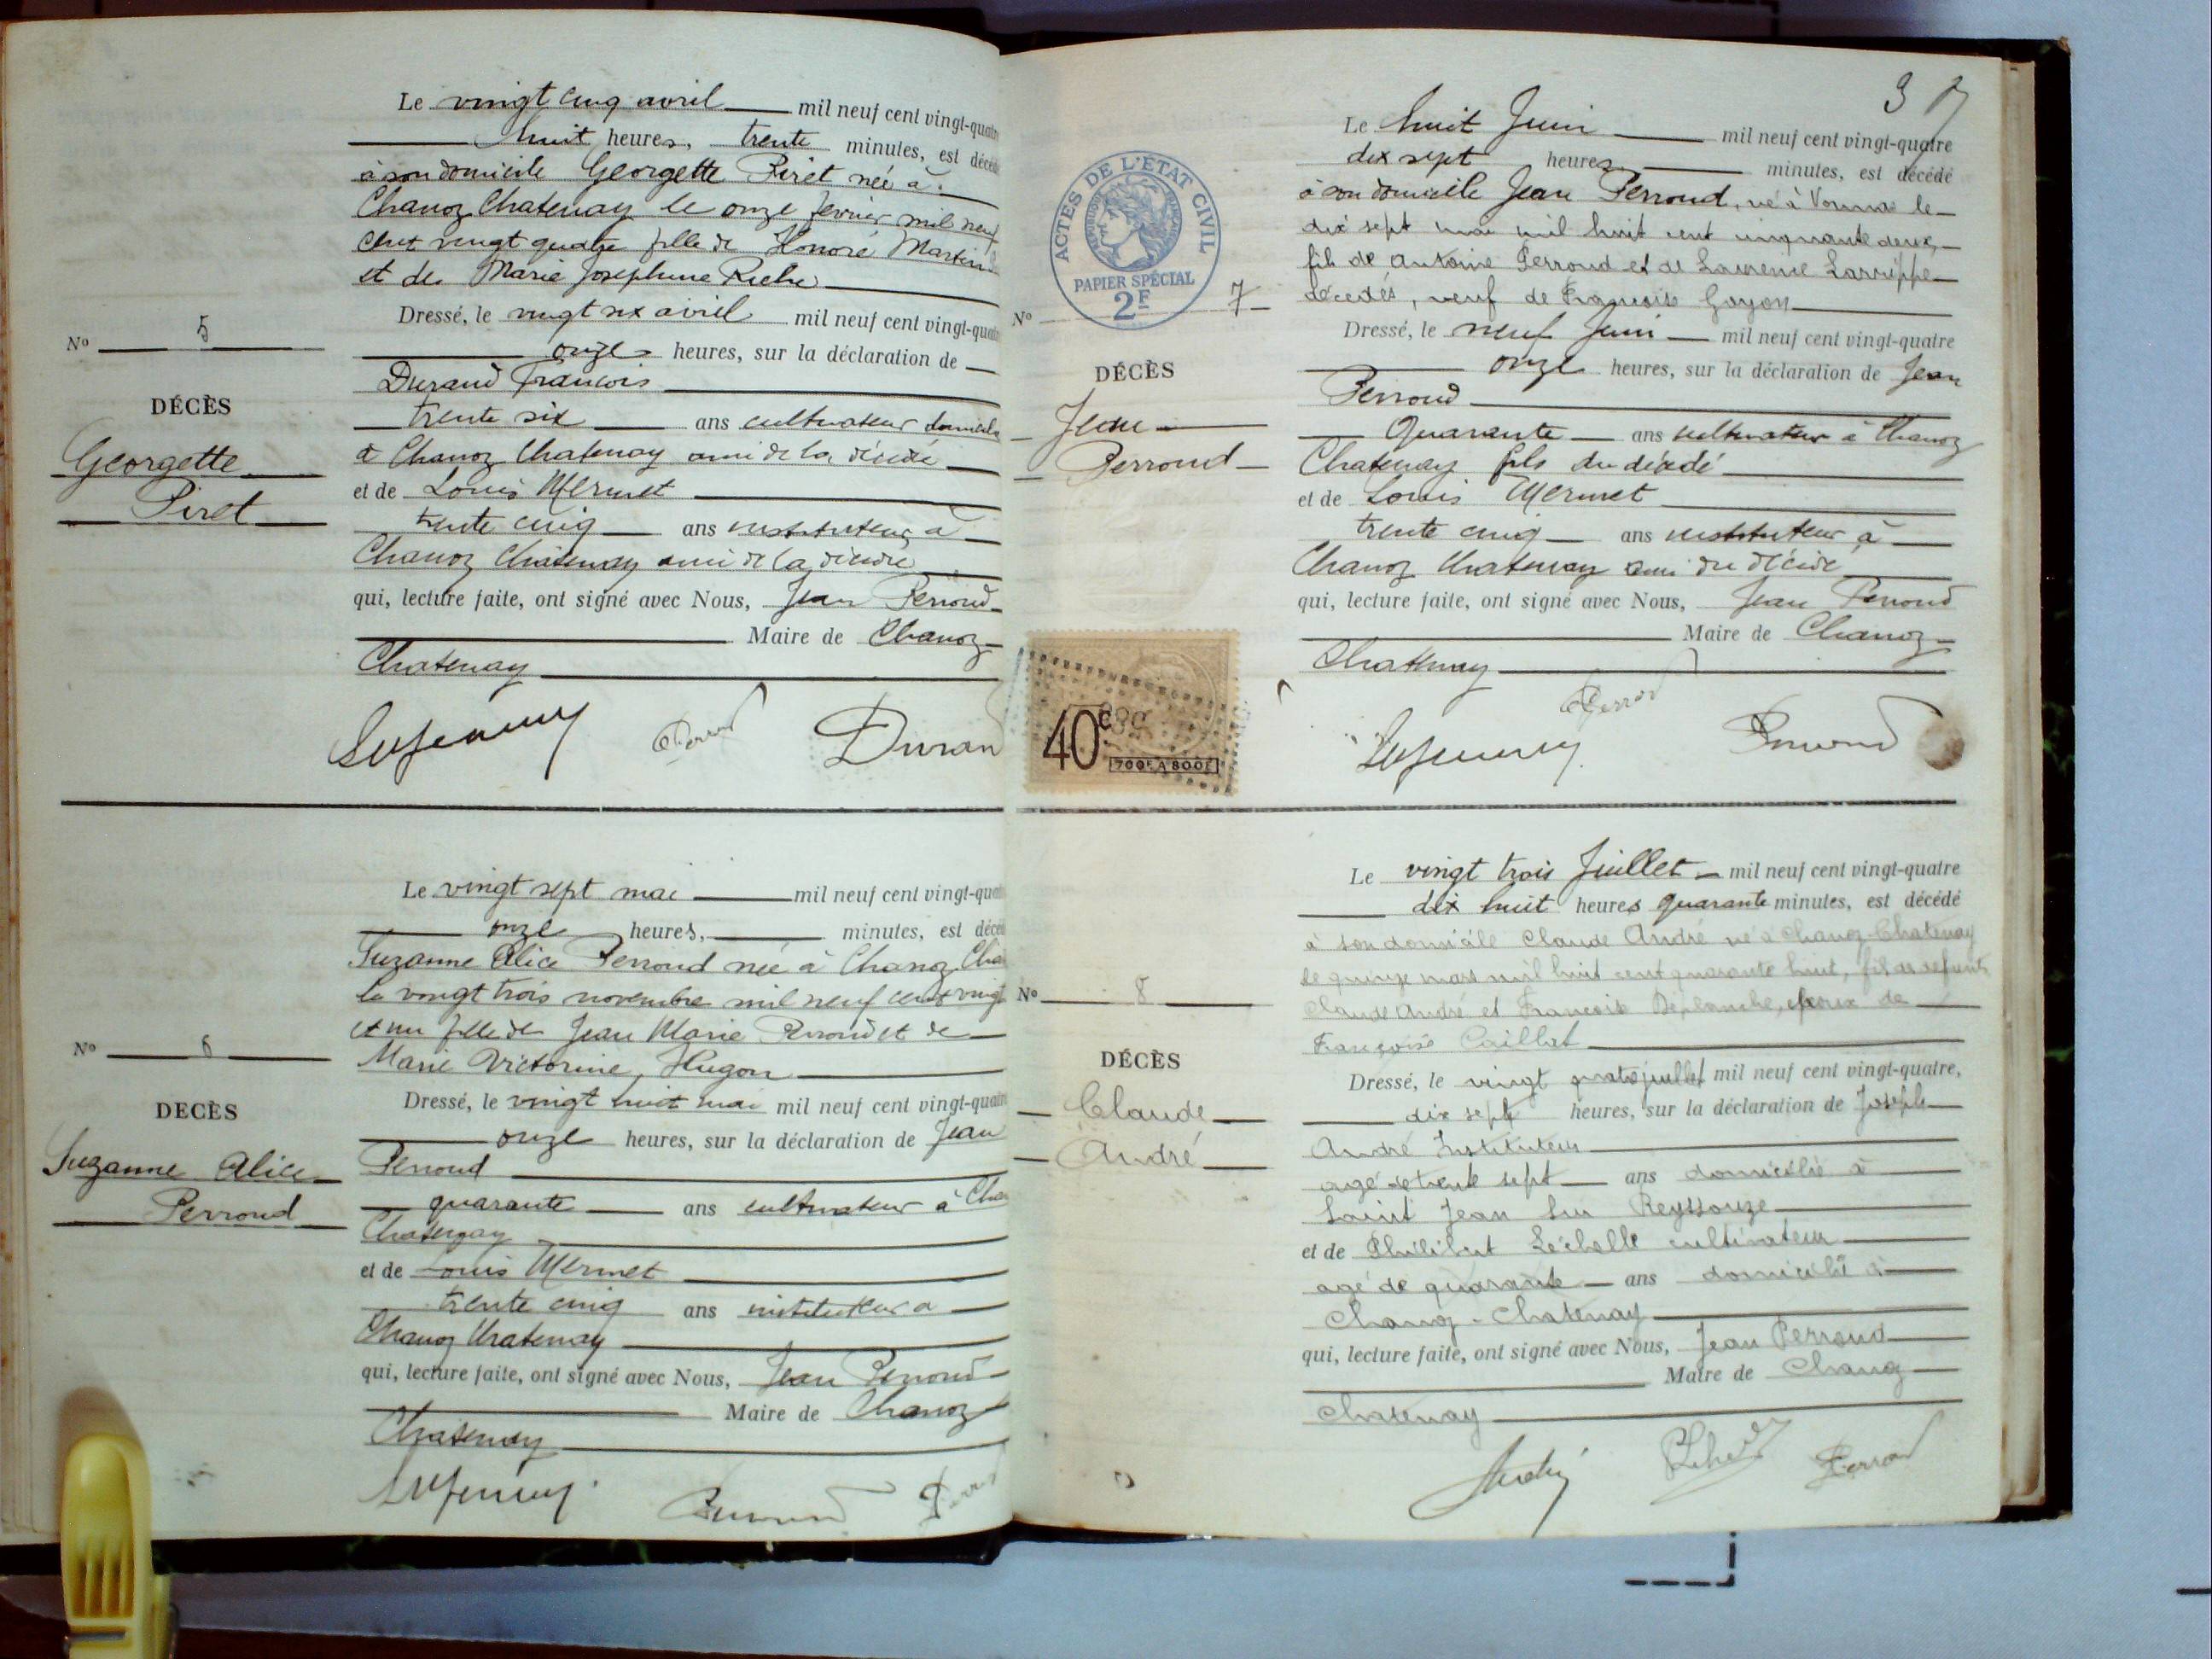 Le vingt cinq avril mil neuf cent vingt-quatre
huit heures, trente minutes, est décédé
à son domicile Georgette Piret née à
Chanoz Chatenay le onze fevrier mil neuf
cent vingt quatre fille de Honoré Martin
et de Marie Josephine Riche
Dressé, le vingt six avril mil neuf cent vingt-quatre
onze heures, sur la déclaration de
Durand François
trente six ans cultivateur domicilié
à Chanoz Chatenay ami de la décédée
et de Louis Mermet
trente cinq ans instituteur à
Chanoz Chatenay ami de la décédée
qui, lecture faite, ont signé avec Nous, Jean Perroud
Maire de Chanoz
Chatenay
Duran
No 5
DÉCÈS
Georgette
Piret
Le vingt sept mai mil neuf cent vingt-qua
onze heures, minutes, est décé
Suzanne Alice Perroud née à Chanoz Cha
le vingt trois novembre mil neuf cent vingt
et un fille de Jean Marie Perroud et de
Marie Victorine Hugon
Dressé, le vingt huit mai mil neuf cent vingt-quatre
onze heures, sur la déclaration de Jean
Perroud
quarante ans cultivateur à Cha
Chatenay
et de Louis Mermet
trente cinq ans instituteur à
Chanoz Chatenay
qui, lecture faite, ont signé avec Nous, Jean Perroud
Maire de Chanoz
Chatenay
No 6
DECÈS
Suzanne Alice
Perroud
3
ACTES DE L'ÉTAT CIVIL
PAPIER SPÉCIAL
2F
No 7
DÉCÈS
Jean
Perroud
40c
700F A 800F
Le huit Juin mil neuf cent vingt-quatre
dix sept heures minutes, est décédé
à son domicile Jean Perroud, né à Vonnas le
dix sept mai mil huit cent cinquante deux,
fils de Antoine Perroud et de Laurence Larrippe
décédés, veuf de Françoise Goyon
Dressé, le neuf Juin mil neuf cent vingt-quatre
onze heures, sur la déclaration de Jean
Perroud
Quarante ans cultivateur à Chanoz
Chatenay fils du décédé
et de Louis Mermet
trente cinq ans instituteur à
Chanoz Chatenay ami du décédé
qui, lecture faite, ont signé avec Nous, Jean Perroud
Maire de Chanoz
Chatenay
Perroud
No 8
DÉCÈS
Claude
André
Le vingt trois Juillet mil neuf cent vingt-quatre
dix huit heures quarante minutes, est décédé
à son domicile Claude André né à Chanoz-Chatenay
le quinze mars mil huit cent quarante huit, fils de defunts
Claude André et Françoise Deplanche, époux de
Françoise Caillat
Dressé, le vingt quatre juillet mil neuf cent vingt-quatre,
dix sept heures, sur la déclaration de Joseph
André Instituteur
agé de trente sept ans domicilié à
Saint Jean sur Reyssouze
et de Philibert Léchelle cultivateur
agé de quarante ans domicilié à
Chanoz-Chatenay
qui, lecture faite, ont signé avec Nous, Jean Perroud
Maire de Chanoz
Chatenay
André
Perroud